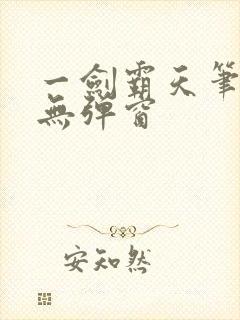 一劍霸天筆
無彈窗
安知然